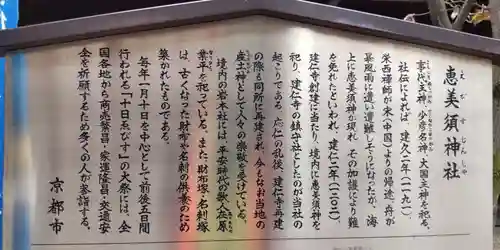 恵美須神社
えびすじんじゃ
事代主神、少彦名神、大国主神を祀る。
社伝によれば、建久二年（一一九一）、
栄西禅師が宋（中国）よりの帰途、舟が
暴風雨に遭い遭難しそうになったが、海
上に恵美須神が現れ、その加護により難
を免れたといわれ、建仁二年（一二〇二）、
建仁寺創建に当たり、境内に恵美須神を
祀り、建仁寺の鎮守社としたのが当社の
起こりである。応仁の乱後、建仁寺再建
の際も同所に再建され、今もなお当地の
産土神として人々の崇敬を受けている。
境内の岩本社には、平安時代の歌人在原
業平を祀っている。また、財布塚、名刺塚
は、古くなった財布や名刺の供養のため
築かれたものである。
毎年一月十日を中心として前後五日間
行われる「十日ゑびす」の大祭には、全
国各地から商売繁昌・家運隆昌・交通安
全を祈願するため多くの人が参詣する。
京都市